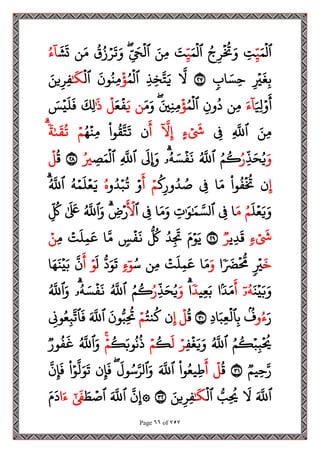 ٱلْمَيِّتِ وَتُخْرِجُ ٱلْمَيِّتَ مِنَ ٱلْحَيِّ ۖ وَتَرْزُقُ مَن تَشَآءُ
بِغَيْرِ حِسَابٍ ٢٧ لَّا يَتَّخِذِ ٱلْمُؤْمِنُونَ ٱلْكَٰفِرِينَ
أَوْلِيَآءَ مِن دُونِ ٱلْمُؤْمِنِينَ ۖ وَمَن يَفْعَلْ ذَٰلِكَ فَلَيْسَ
مِنَ ٱللَّهِ فِى شَىْءٍ إِلَّآ أَن تَتَّقُوا۟ مِنْهُمْ تُقَىٰةً ۗ
وَيُحَذِّرُكُمُ ٱللَّهُ نَفْسَهُۥ ۗ وَإِلَى ٱللَّهِ ٱلْمَصِيرُ ٢٨ قُلْ
إِن تُخْفُوا۟ مَا فِى صُدُورِكُمْ أَوْ تُبْدُوهُ يَعْلَمْهُ ٱللَّهُ ۗ
وَيَعْلَمُ مَا فِى ٱلسَّمَٰوَٰتِ وَمَا فِى ٱلْأَرْضِ ۗ وَٱللَّهُ عَلَىٰ كُلِّ
شَىْءٍ قَدِيرٌ ٢٩ يَوْمَ تَجِدُ كُلُّ نَفْسٍ مَّا عَمِلَتْ مِنْ
خَيْرٍ مُّحْضَرًا وَمَا عَمِلَتْ مِن سُوٓءٍ تَوَدُّ لَوْ أَنَّ بَيْنَهَا
وَبَيْنَهُۥٓ أَمَدًۢا بَعِيدًا ۗ وَيُحَذِّرُكُمُ ٱللَّهُ نَفْسَهُۥ ۗ وَٱللَّهُ
رَءُوفٌۢ بِٱلْعِبَادِ ٣٠ قُلْ إِن كُنتُمْ تُحِبُّونَ ٱللَّهَ فَٱتَّبِعُونِى
يُحْبِبْكُمُ ٱللَّهُ وَيَغْفِرْ لَكُمْ ذُنُوبَكُمْ ۗ وَٱللَّهُ غَفُورٌ
رَّحِيمٌ ٣١ قُلْ أَطِيعُوا۟ ٱللَّهَ وَٱلرَّسُولَ ۖ فَإِن تَوَلَّوْا۟ فَإِنَّ
ٱللَّهَ لَا يُحِبُّ ٱلْكَٰفِرِينَ ٣٢ ۞ إِنَّ ٱللَّهَ ٱصْطَفَىٰٓ ءَادَمَ
Page ٦٦ of ٧٥٧